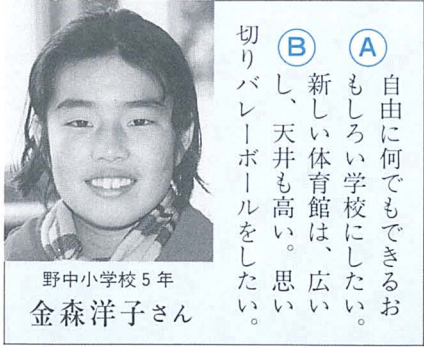 Ⓐ 自由に何でもできるお
もしろい学校にしたい。
Ⓑ 新しい体育館は、広い
し、天井も高い。思い
切りバレーボールをしたい。
野中小学校5年
金森洋子さん